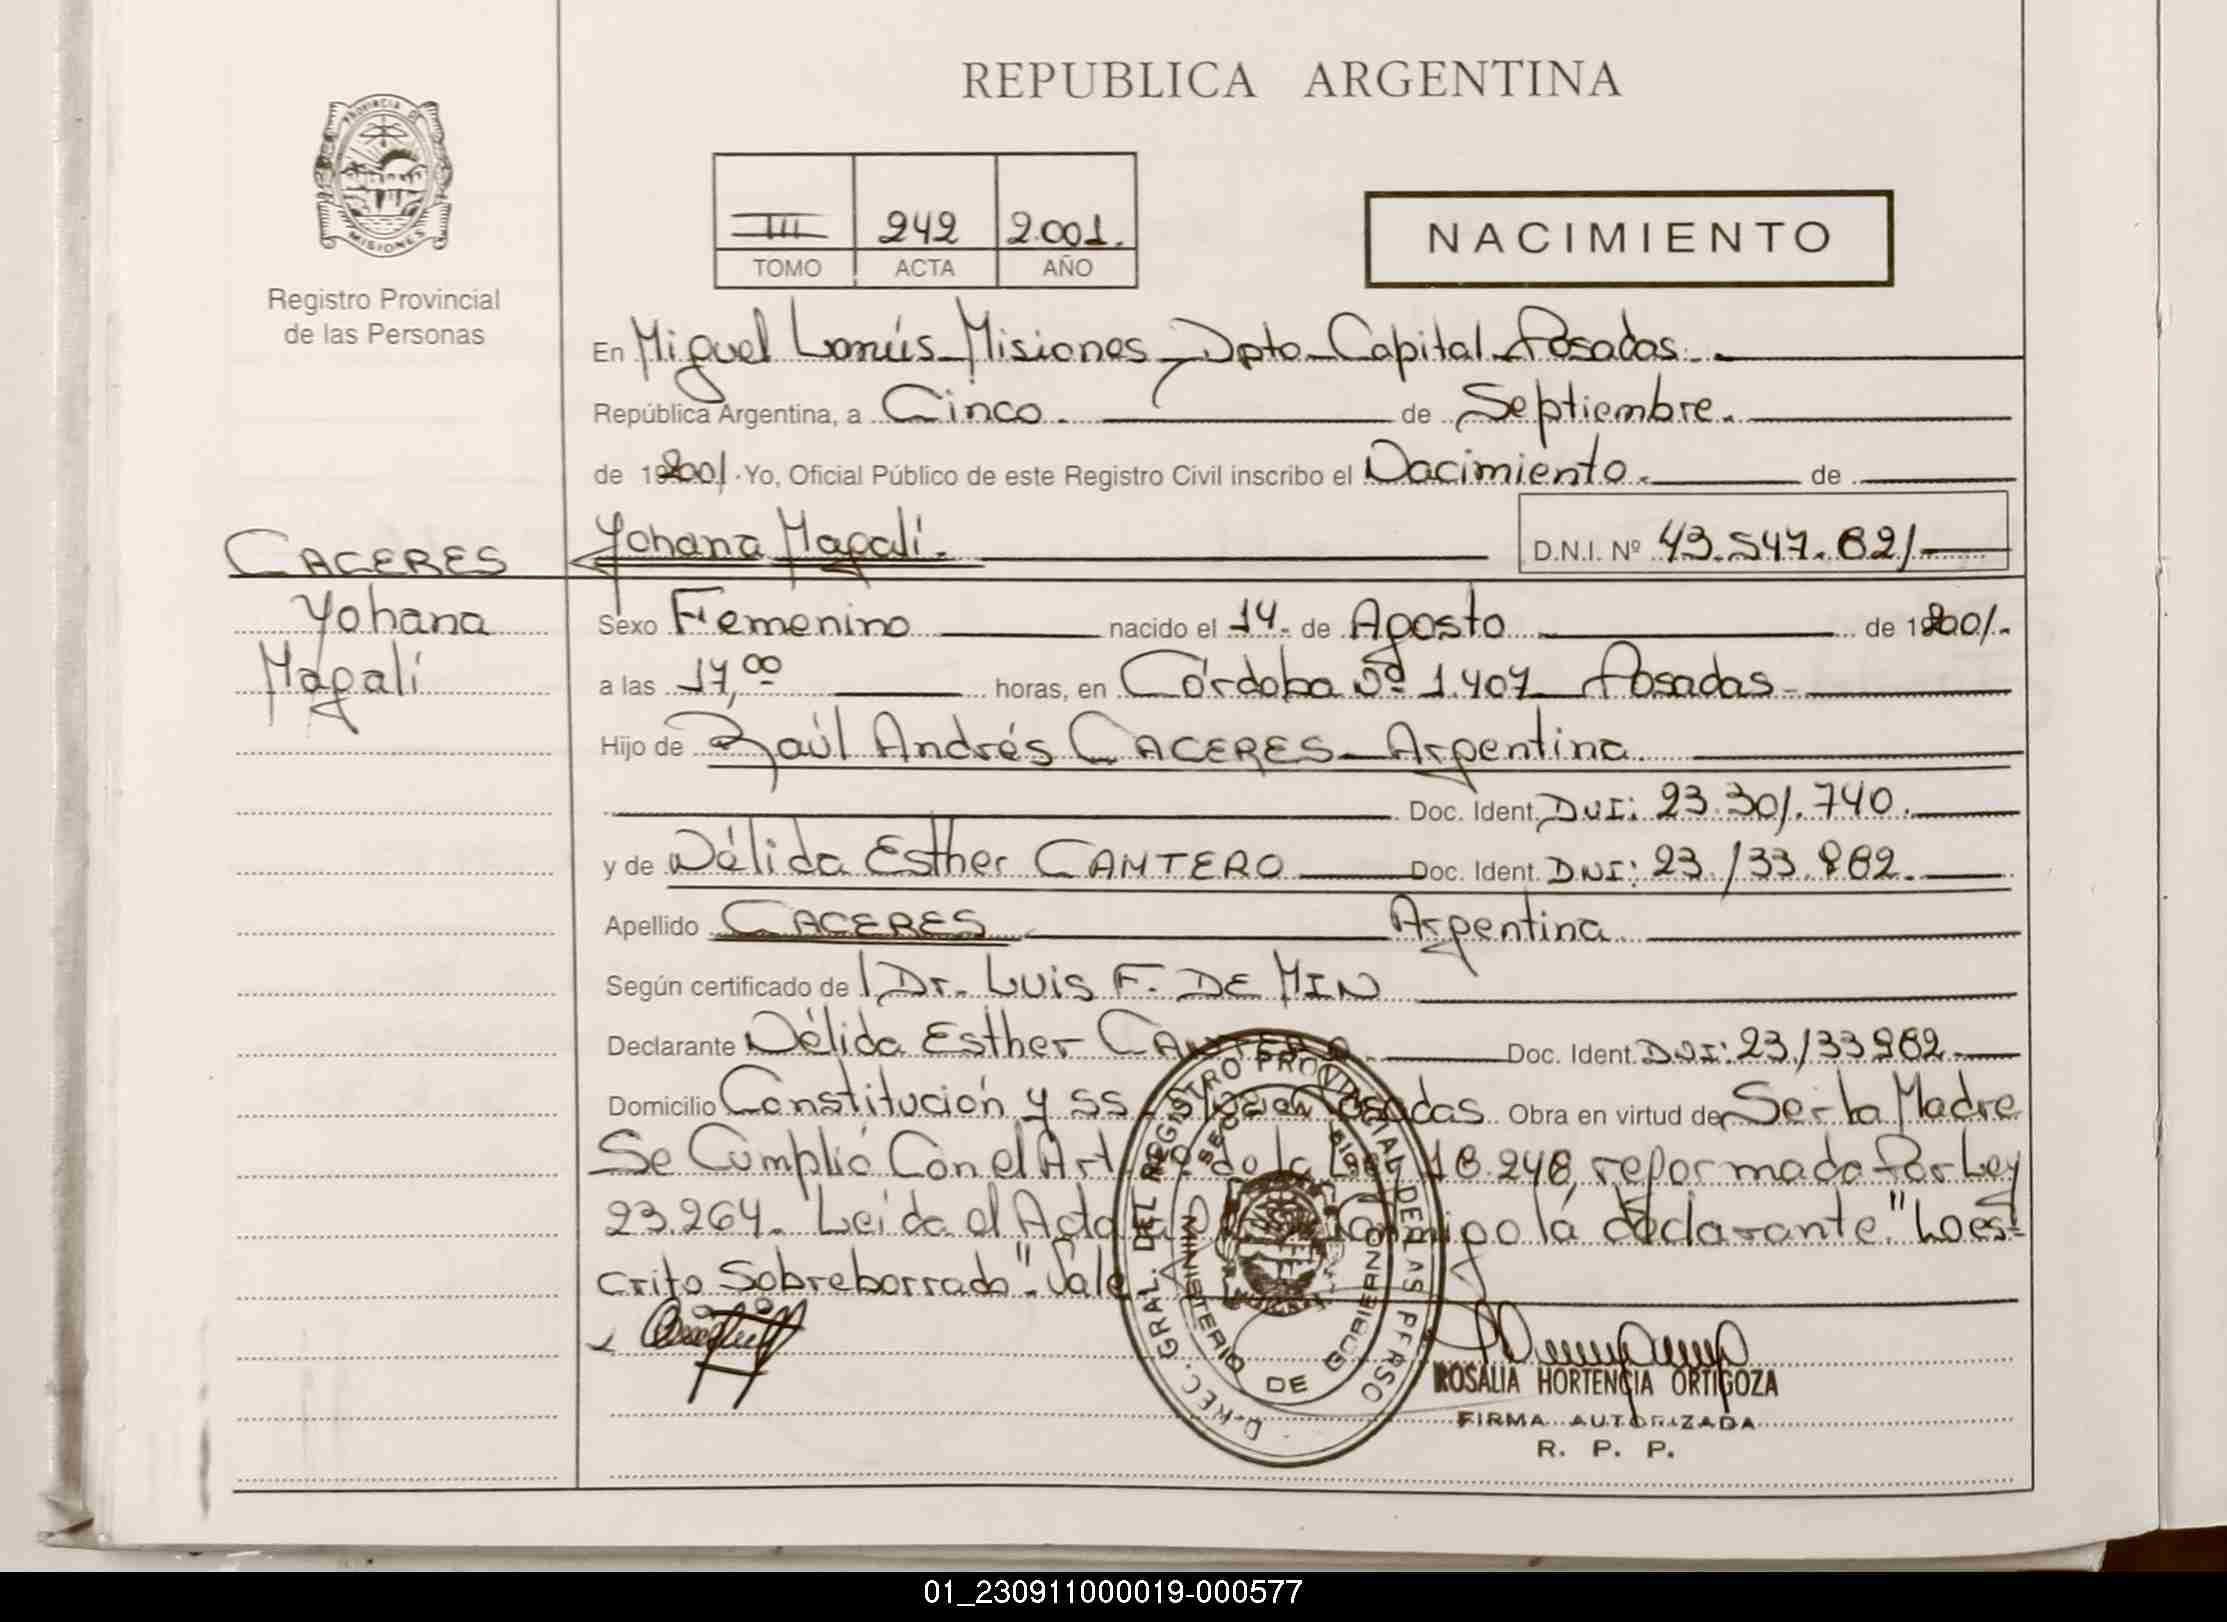 REPUBLICA ARGENTINA
PROVINCIA DE
MISIONES
Registro Provincial
de las Personas
III 242 2.001.
TOMO ACTA AÑO
NACIMIENTO
En Miguel Lanús Misiones Dpto Capital Posadas.
República Argentina, a Cinco. de Septiembre.
de 2001 Yo, Oficial Público de este Registro Civil inscribo el Nacimiento. de
CACERES Yohana Magalí. D.N.I. Nº 43.547.621
Yohana Sexo Femenino nacido el 14 de Agosto de 2001.
Magalí a las 17,00 horas, en Córdoba Nº 1.407 Posadas
Hijo de Raúl Andrés CACERES Argentina
Doc. Ident. DNI: 23.301.740.
y de Nélida Esther CANTERO Doc. Ident. DNI: 23.133.962.
Apellido CACERES Argentina
Según certificado de Dr. Luis F. DE MIN
Declarante Nélida Esther Doc. Ident. DNI: 23.133962
Domicilio Constitución y ss Posadas. Obra en virtud de Ser la Madre
Se Cumplió Con el Art de la Ley 18.248, reformada Por Ley
23.264. Leída el Acta Conmigo la declarante. "Lo es-
crito Sobreborrado". Vale
DIREC. GRAL. DEL REGISTRO PROVINCIAL DE LAS PERSO
MINISTERIO DE GOBIERNO
ROSALIA HORTENCIA ORTIGOZA
FIRMA AUTORIZADA
R. P. P.
01_230911000019-000577